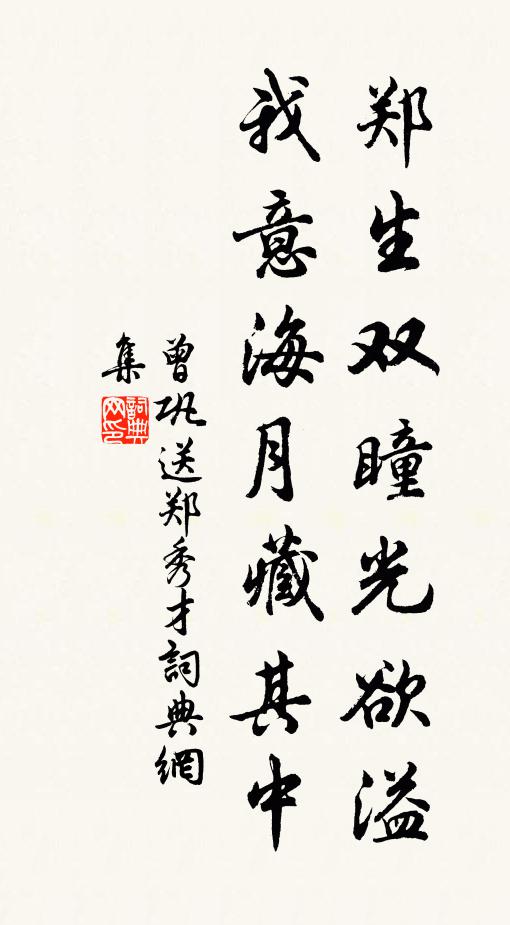 郑生双瞳光欲溢
我意海月藏其中
曾巩送郑秀才詞典網
集
詞典
网印